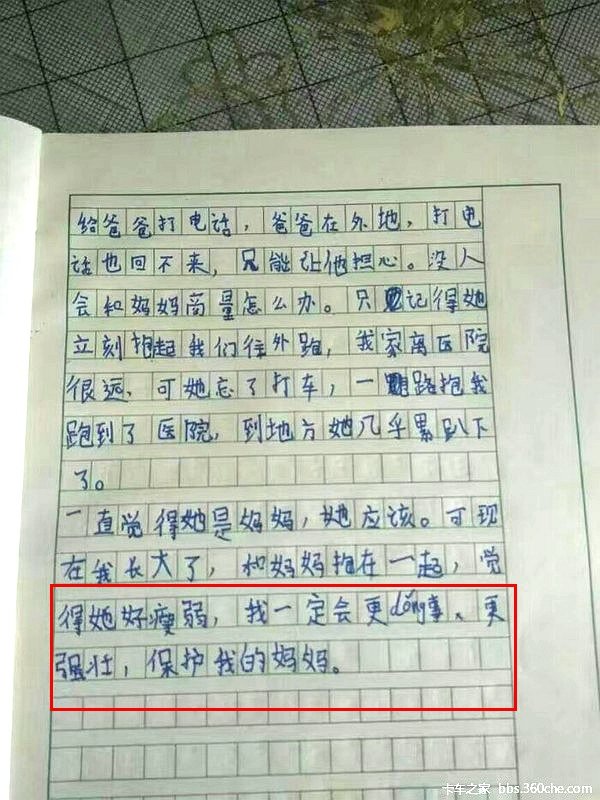 给爸爸打电话，爸爸在外地，打电
话也回不来，只能让他担心。没人
会和妈妈商量怎么办。只记得她
立刻抱起我们往外跑，我家离医院
很远，可她忘了打车，一路抱我
跑到了医院，到地方她几乎累趴下
了。
一直觉得她是妈妈，她应该。可现
在我长大了，和妈妈抱在一起，觉
得她好瘦弱，我一定会更dǒng事、更
强壮，保护我的妈妈。
卡车之家 bbs.360che.com